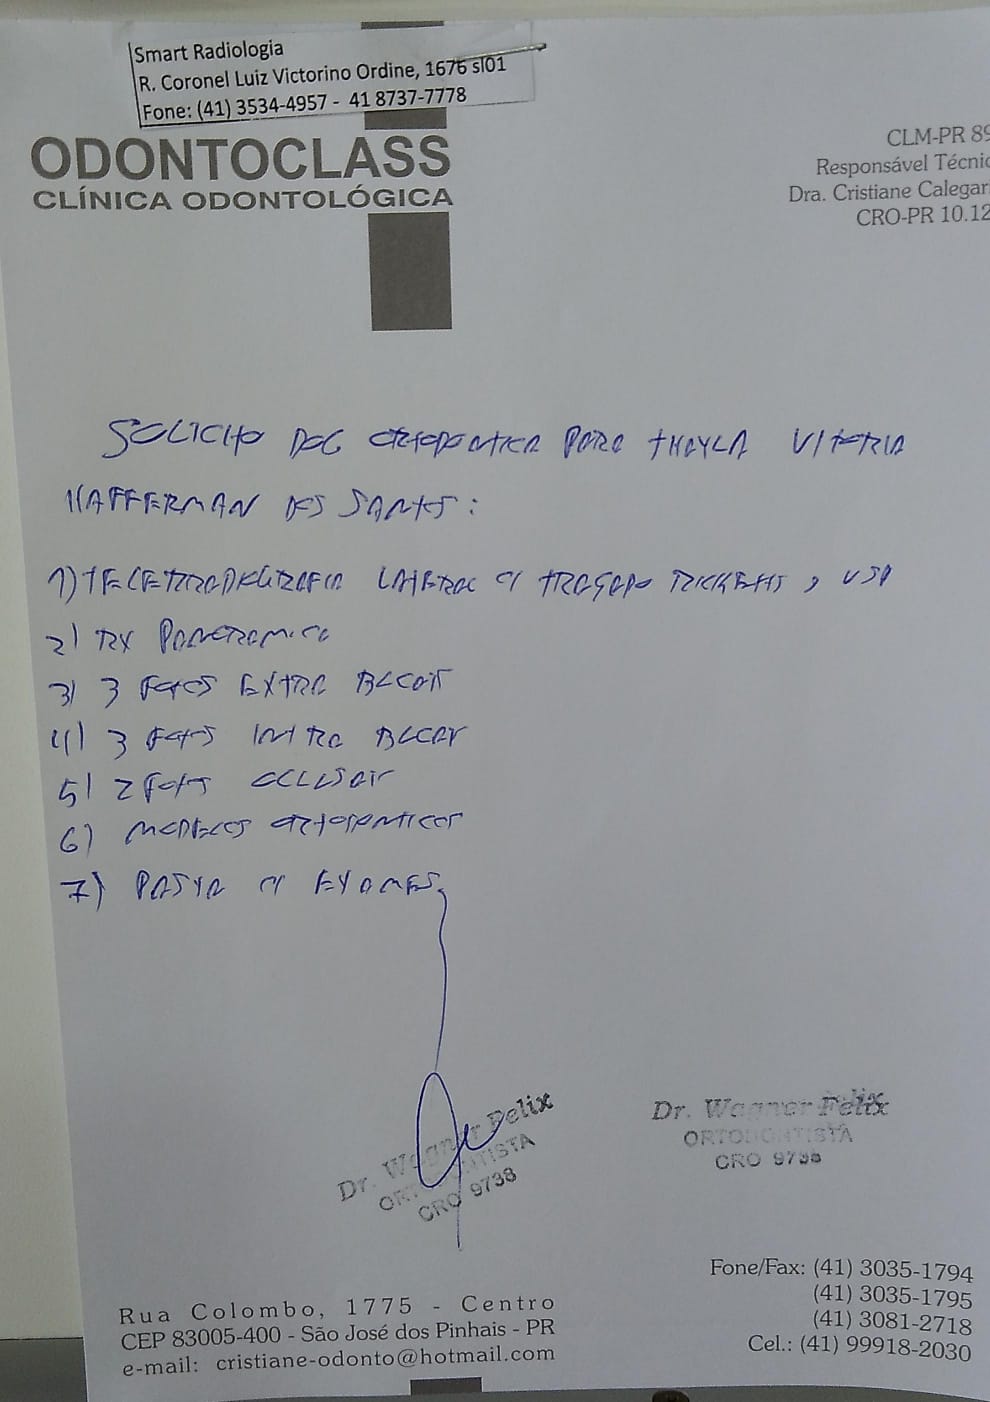 Smart Radiologia
R. Coronel Luiz Victorino Ordine, 1676 sl01
Fone: (41) 3534-4957 - 41 8737-7778
ODONTOCLASS
CLÍNICA ODONTOLÓGICA
CLM-PR 89
Responsável Técnic
Dra. Cristiane Calegar
CRO-PR 10.12
SOLICITO DOC ORTODONTICA PARA THAYLA VITORIA
HAFFERMAN DOS SANTOS:
1) TELERRADIOGRAFIA LATERAL C/ TRAÇADO RICKETTS, USP
2) RX PANORAMICA
3) 3 FOTOS EXTRA BUCAIS
4) 3 FOTOS INTRA BUCAIS
5) 2 FOTOS OCLUSAIS
6) MODELOS ORTODONTICOS
7) PASTA C/ EXAMES
Dr. Wagner Felix
ORTODONTISTA
CRO 9738
Dr. Wagner Felix
ORTODONTISTA
CRO 9738
Rua Colombo, 1775 - Centro
CEP 83005-400 - São José dos Pinhais - PR
e-mail: cristiane-odonto@hotmail.com
Fone/Fax: (41) 3035-1794
(41) 3035-1795
(41) 3081-2718
Cel.: (41) 99918-2030